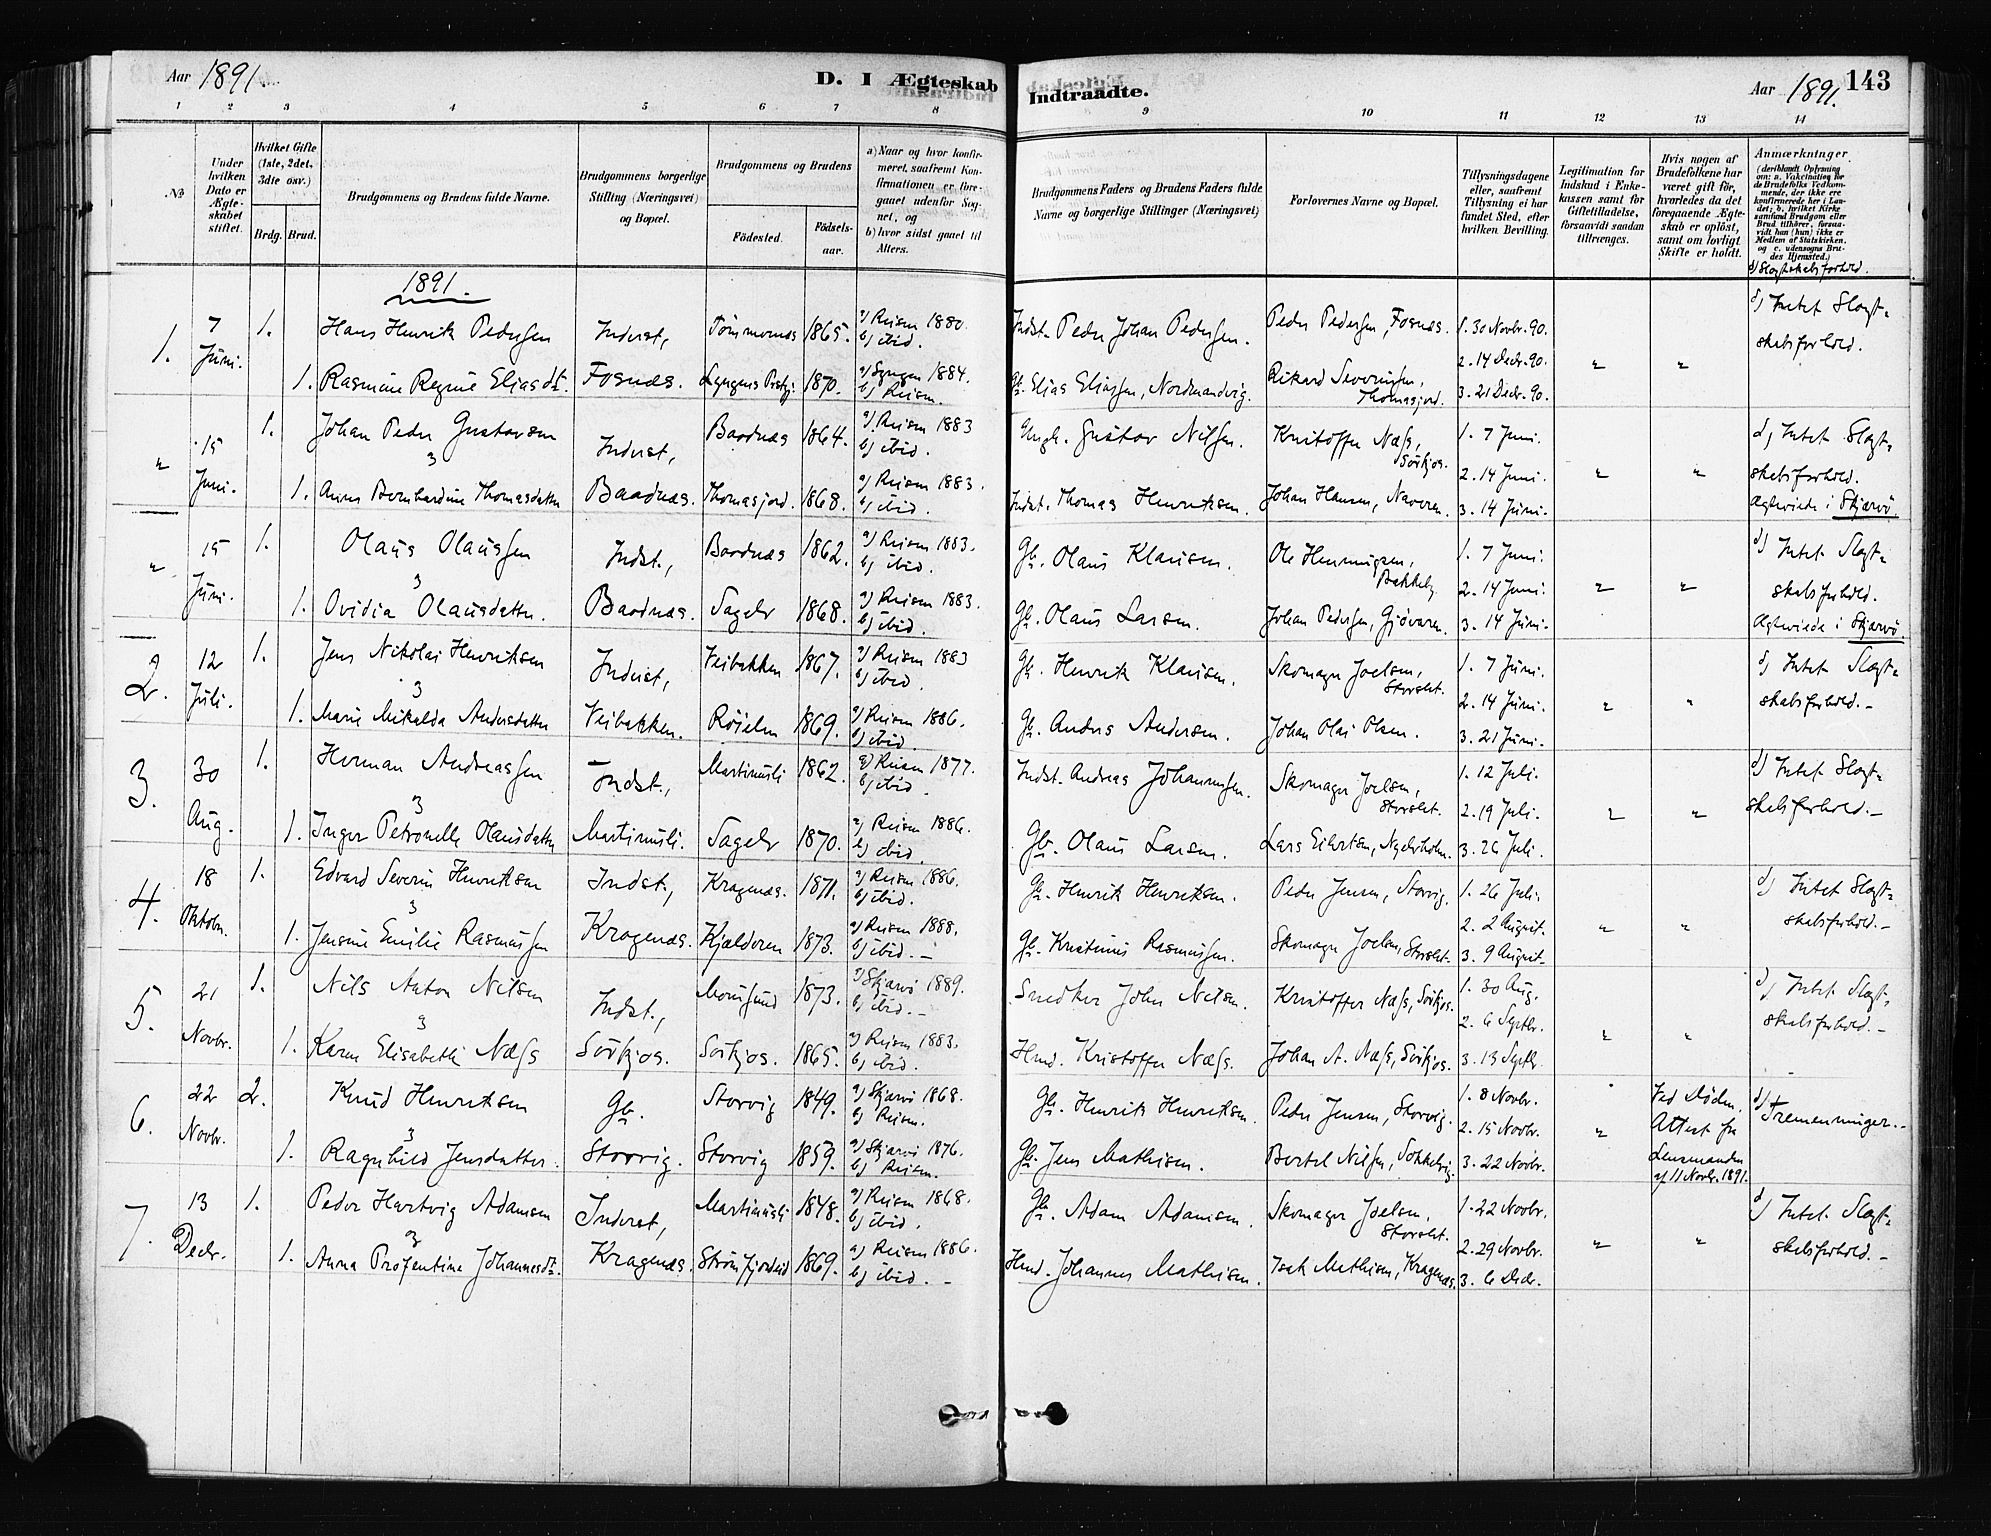 Aar 1891.
D. I Ægteskab
Indtraadte.
Aar 1891. 143
1 2 3 4 5 6 7 8 9 10 11 12 13 14
№
Under hvilken Dato er Ægteskabet stiftet.
Hvilket Gifte (1ste, 2det, 3dte osv.)
Brdg. Brud.
Brudgommens og Brudens fulde Navne.
Brudgommens borgerlige Stilling (Næringsvei) og Bopæl.
Brudgommens og Brudens
Fødested. Fødselsaar.
a) Naar og hvor konfirmeret, saafremt Konfirmationen er foregaaet udenfor Sognet, og
b) hvor sidst gaaet til Alters.
Brudgommens Faders og Brudens Faders fulde Navne og borgerlige Stillinger (Næringsvei)
Forlovernes Navne og Bopæl.
Tillysningsdagene eller, saafremt Tillysning ei har fundet Sted, efter hvilken Bevilling.
Legitimation for Indskud i Enkekassen samt for Giftetilladelse, forsaavidt saadan tiltrænges.
Hvis nogen af Brudefolkene har været gift før, hvorledes da det foregaaende Ægteskab er opløst, samt om lovligt Skifte er holdt.
Anmærkninger.
(deriblandt Oplysning om: a. Vaksination for de Brudefolks Vedkommende, der ikke ere konfirmerede her i Landet; b. hvilket Kirkesamfund Brudgom eller Brud tilhører, forsaavidt han (hun) ikke er Medlem af Statskirken, og c. udensogns Brudes Hjemsted.)
d) Slegtskabsforhold.
1891.
1. 7 Juni. 1. Hans Henrik Pedersen Inderst, Tømmernes 1865. a) Reisen 1880. b) ibid. Indst. Peder Johan Pedersen. Peder Pedersen, Fosnæs. 1. 30 Novbr. 90. d) Intet Slegt-
1. Rasmine Regine Eliasdtr. Fosnæs. Lyngens Prstgj. 1870. a) Lyngen 1884. b) Reisen. Gbr. Elias Eliassen, Nordmandvig. Rikard Severinsen, Thomasjord. 2. 14 Decbr. 90. 3. 21 Decbr. 90. " " skabsforhold.
" 15 Juni. 1. Johan Peder Gustavsen Inderst, Baadnæs 1864. a) Reisen 1883 b) ibid. Ungk. Gustav Nilsen. Kristoffer Næss, Sörkjos. 1. 7 Juni. d) Intet Slegt-
1. Anna Bernhardine Thomasdatter Baadnæs. Thomasjord. 1868. a) Reisen 1883. b) ibid. Indst. Thomas Henriksen. Johan Hansen, Naveren. 2. 14 Juni. 3. 14 Juni. " " skabsforhold. Ægteviede i Skjærvö.
" 15 Juni. 1. Olaus Olaussen Indst., Baadnæs 1862. a) Reisen 1883. b) ibid. Gb. Olaus Klausen. Ole Henningsen, Bakkeby 1. 7 Juni. d) Intet Slegt-
1. Ovidia Olausdatter. Baadnæs. Sagelv 1868. a) Reisen 1883. b) ibid. Gb. Olaus Larsen. Johan Pedersen, Gjøvaren. 2. 14 Juni. 3. 14 Juni. " " skabsforhold. Ægteviede i Skjærvö.
2. 12 Juli. 1. Jens Nikolai Henriksen Inderst, Veibakken 1867. a) Reisen 1883 b) ibid. Gb. Henrik Klausen. Skomager Joelsen, Storslet. 1. 7 Juni. d) Intet Slegt-
1. Marie Mikalda Andersdatter Veibakken. Röielen 1869. a) Reisen 1886. b) ibid. Gb. Anders Andersen. Johan Olai Olsen. 2. 14 Juni. 3. 21 Juni. " " skabsforhold.
3. 30 Aug. 1. Herman Andreassen Indst., Martinusli 1862. a) Reisen 1877. b) ibid. Indst. Andreas Johannessen. Skomager Joelsen, Storslet. 1. 12 Juli. d) Intet Slegt-
1. Inger Petronelle Olausdatter Martinusli. Sagelv 1870. a) Reisen 1886. b) ibid. Gb. Olaus Larsen. Lars Eilertsen, Nyelvholm. 2. 19 Juli. 3. 26 Juli. " " skabsforhold.
4. 18 Oktober. 1. Edvard Severin Henriksen Indst., Kragenæs. 1871. a) Reisen 1886. b) ibid. Gb. Henrik Henriksen. Peder Jensen, Storvig. 1. 26 Juli. d) Intet Slegt-
1. Jensine Emilie Rasmussen Kragenæs. Kjælderen 1873. a) Reisen 1888. b) ibid. Gb. Kristinus Rasmussen. Skomager Joelsen, Storslet. 2. 2 August. 3. 9 August. " " skabsforhold.
5. 21 Novbr. 1. Nils Anton Nilsen Indst., Maursund 1873. a) Skjærvö 1889. b) ibid. Snedker John Nilsen. Kristoffer Næss, Sörkjos. 1. 30 Aug. d) Intet Slegt-
1. Karen Elisabeth Næss Sörkjos. Sörkjos. 1865. a) Reisen 1883. b) ibid. Hmd. Kristoffer Næss. Johan A. Næss, Sörkjos. 2. 6 Septbr. 3. 13 Septbr. " " skabsforhold.
6. 22 Novbr. 2. Knud Henriksen Gb. Storvig 1849. a) Skjærvö 1868. b) Reisen. Gb. Henrik Henriksen. Peder Jensen, Storvig. 1. 8 Novbr. Ved Døden. d) Tremenninger.
1. Ragnhild Jensdatter. Storvig. Storvig 1859. a) Skjærvö 1876. b) Reisen. Gb. Jens Mathisen. Bertel Nilsen, Sokkelvig. 2. 15 Novbr. 3. 22 Novbr. " Attest fra Lensmanden af 11 Novbr. 1891.
7. 13 Decbr. 1. Peder Hartvig Adamsen Inderst, Martinusli 1848. a) Reisen 1868. b) ibid. Gb. Adam Adamsen. Skomager Joelsen, Storslet. 1. 22 Novbr. d) Intet Slegt-
1. Anna Profentine Johannesdtr. Kragenæs. Strømfjordeid 1869. a) Reisen 1886. b) ibid. Hmd. Johannes Mathisen. Isak Mathisen, Kragenæs. 2. 29 Novbr. 3. 6 Decbr. " " skabsforhold.